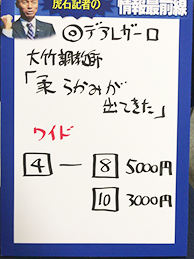 虎石記者の
情報最前線
◎デアレガーロ
大竹調教師
「柔らかみが
出てきた」
ワイド
4 ― 8 5000円
10 3000円